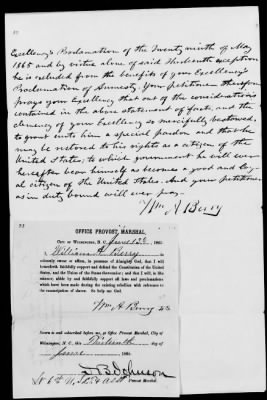 Excellency's Proclamation of the Twenty ninth of May
1865 and by virtue alone of said thirteenth exception
he is excluded from the benefits of your Excellency's
Proclamation of Amnesty. Your petitioner therefore
prays your Excellency that out of the considerations
contained in the above statement of facts, and the
clemency of your Excellency so mercifully bestowed,
to grant unto him a special pardon and that he
may be restored to his rights as a citizen of the
United States, to which government he will ever
hereafter bear himself as becomes a good and loy-
al citizen of the United States. And your petitioner
as in duty bound will ever pray.
Wm A Berry
OFFICE PROVOST MARSHAL,
City of Wilmington, N. C., June 13th 1865.
I, William A. Berry
solemnly swear or affirm, in presence of Almighty God, that I will
henceforth faithfully support and defend the Constitution of the United
States, and the Union of the States thereunder; and that I will, in like
manner, abide by and faithfully support all laws and proclamations
which have been made during the existing rebellion with reference to
the emancipation of slaves. So help me God.
Wm A Berry
Sworn to and subscribed before me, at Office Provost Marshal, City of
Wilmington, N. C., this Thirteenth day of
June 1865.
Johnson
Provost Marshal.